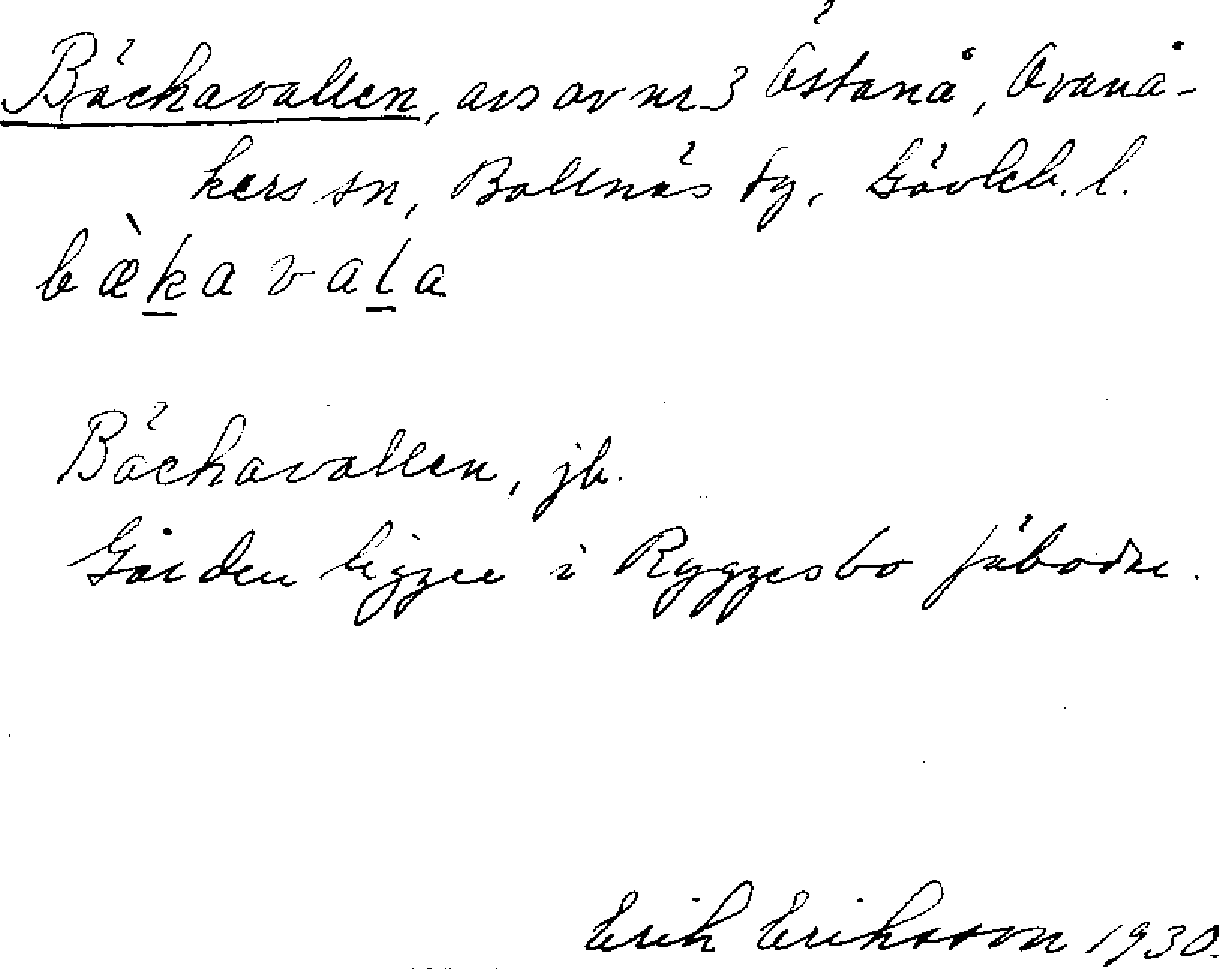 Bäckavallen, avs av nr 3 Östanå, Ovanå-
kers sn, Bollnäs tg, Gävleb. l.
bæ̀k̠aval̠a
Bäckavallen, jb.
Gården ligger i Ryggesbo fäbodar.
Erik Eriksson 1930.